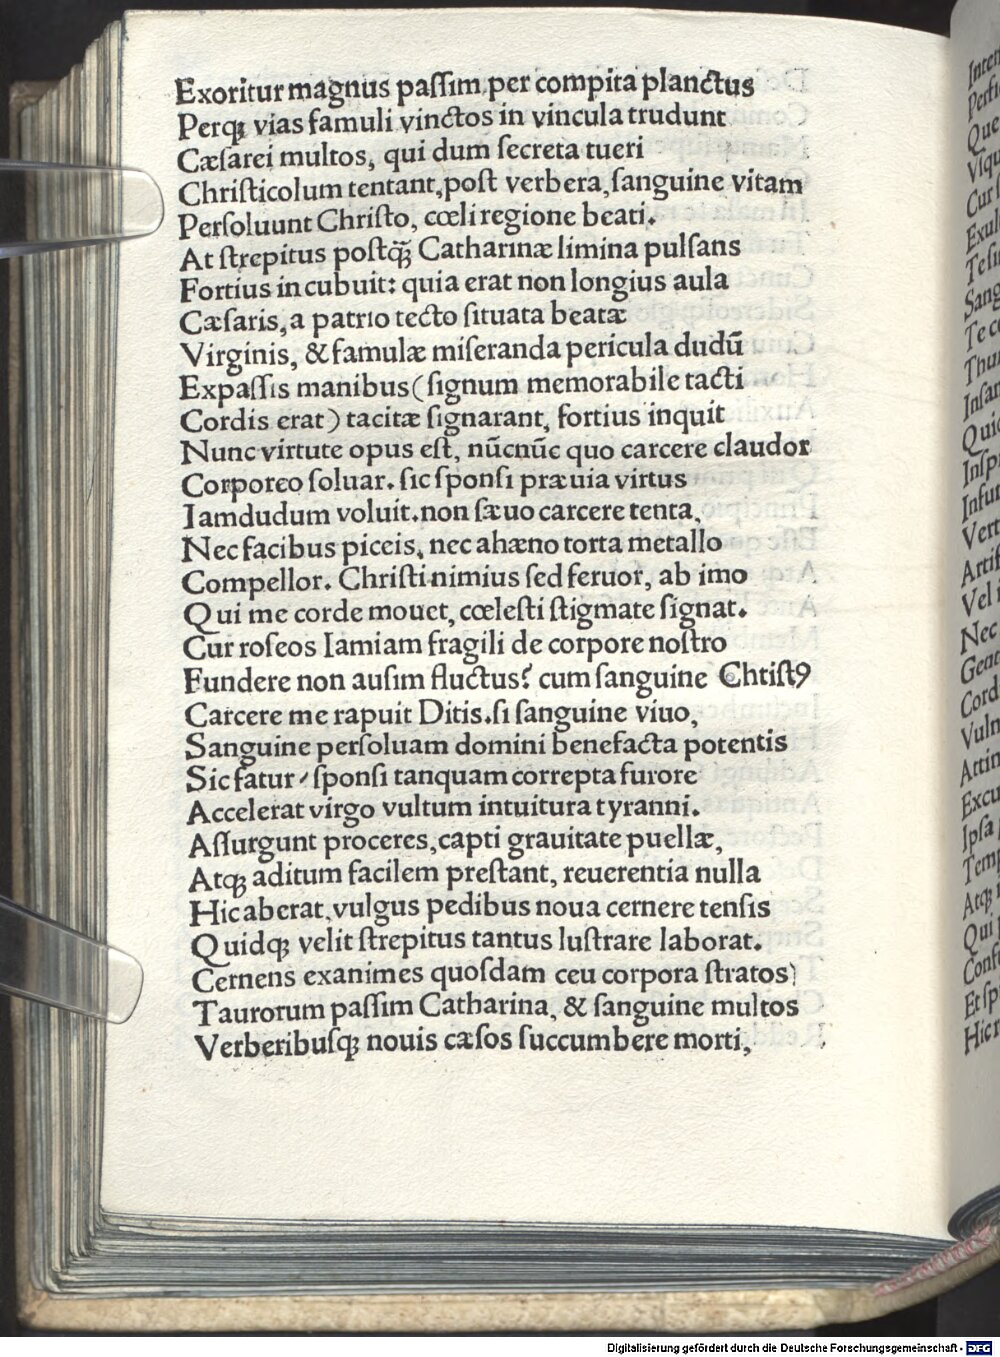 Exoritur magnus paſſim per compita planctus
Perqꝫ vias famuli vinctos in vincula trudunt
Cæſarei multos, qui dum ſecreta tueri
Chriſticolum tentant, poſt verbera, ſanguine vitam
Perſoluunt Chriſto, cœli regione beati.
At ſtrepitus poſtqꝫ̃ Catharinæ limina pulſans
Fortius incubuit: quia erat non longius aula
Cæſaris, a patrio tecto ſituata beatæ
Virginis, & famulæ miſeranda pericula dudū
Expaſſis manibus (ſignum memorabile tacti
Cordis erat) tacitæ ſignarant, fortius inquit
Nunc virtute opus eſt, nūcnūc quo carcere claudor
Corporeo ſoluar. ſic ſponſi præuia virtus
Iamdudum voluit. non ſæuo carcere tenta,
Nec facibus piceis, nec ahæno torta metallo
Compellor. Chriſti nimius ſed feruor, ab imo
Qui me corde mouet, cœleſti ſtigmate ſignat.
Cur roſeos Iamiam fragili de corpore noſtro
Fundere non auſim fluctus? cum ſanguine Chriſtꝰ
Carcere me rapuit Ditis. ſi ſanguine viuo,
Sanguine perſoluam domini benefacta potentis
Sic fatur / ſponſi tanquam correpta furore
Accelerat virgo vultum intuitura tyranni.
Aſſurgunt proceres, capti grauitate puellæ,
Atqꝫ aditum facilem preſtant, reuerentia nulla
Hic aberat, vulgus pedibus noua cernere tenſis
Quidqꝫ velit ſtrepitus tantus luſtrare laborat.
Cernens exanimes quoſdam ceu corpora ſtratos)
Taurorum paſſim Catharina, & ſanguine multos
Verberibuſqꝫ nouis cæſos ſuccumbere morti,
Digitalisierung gefördert durch die Deutsche Forschungsgemeinschaft - DFG